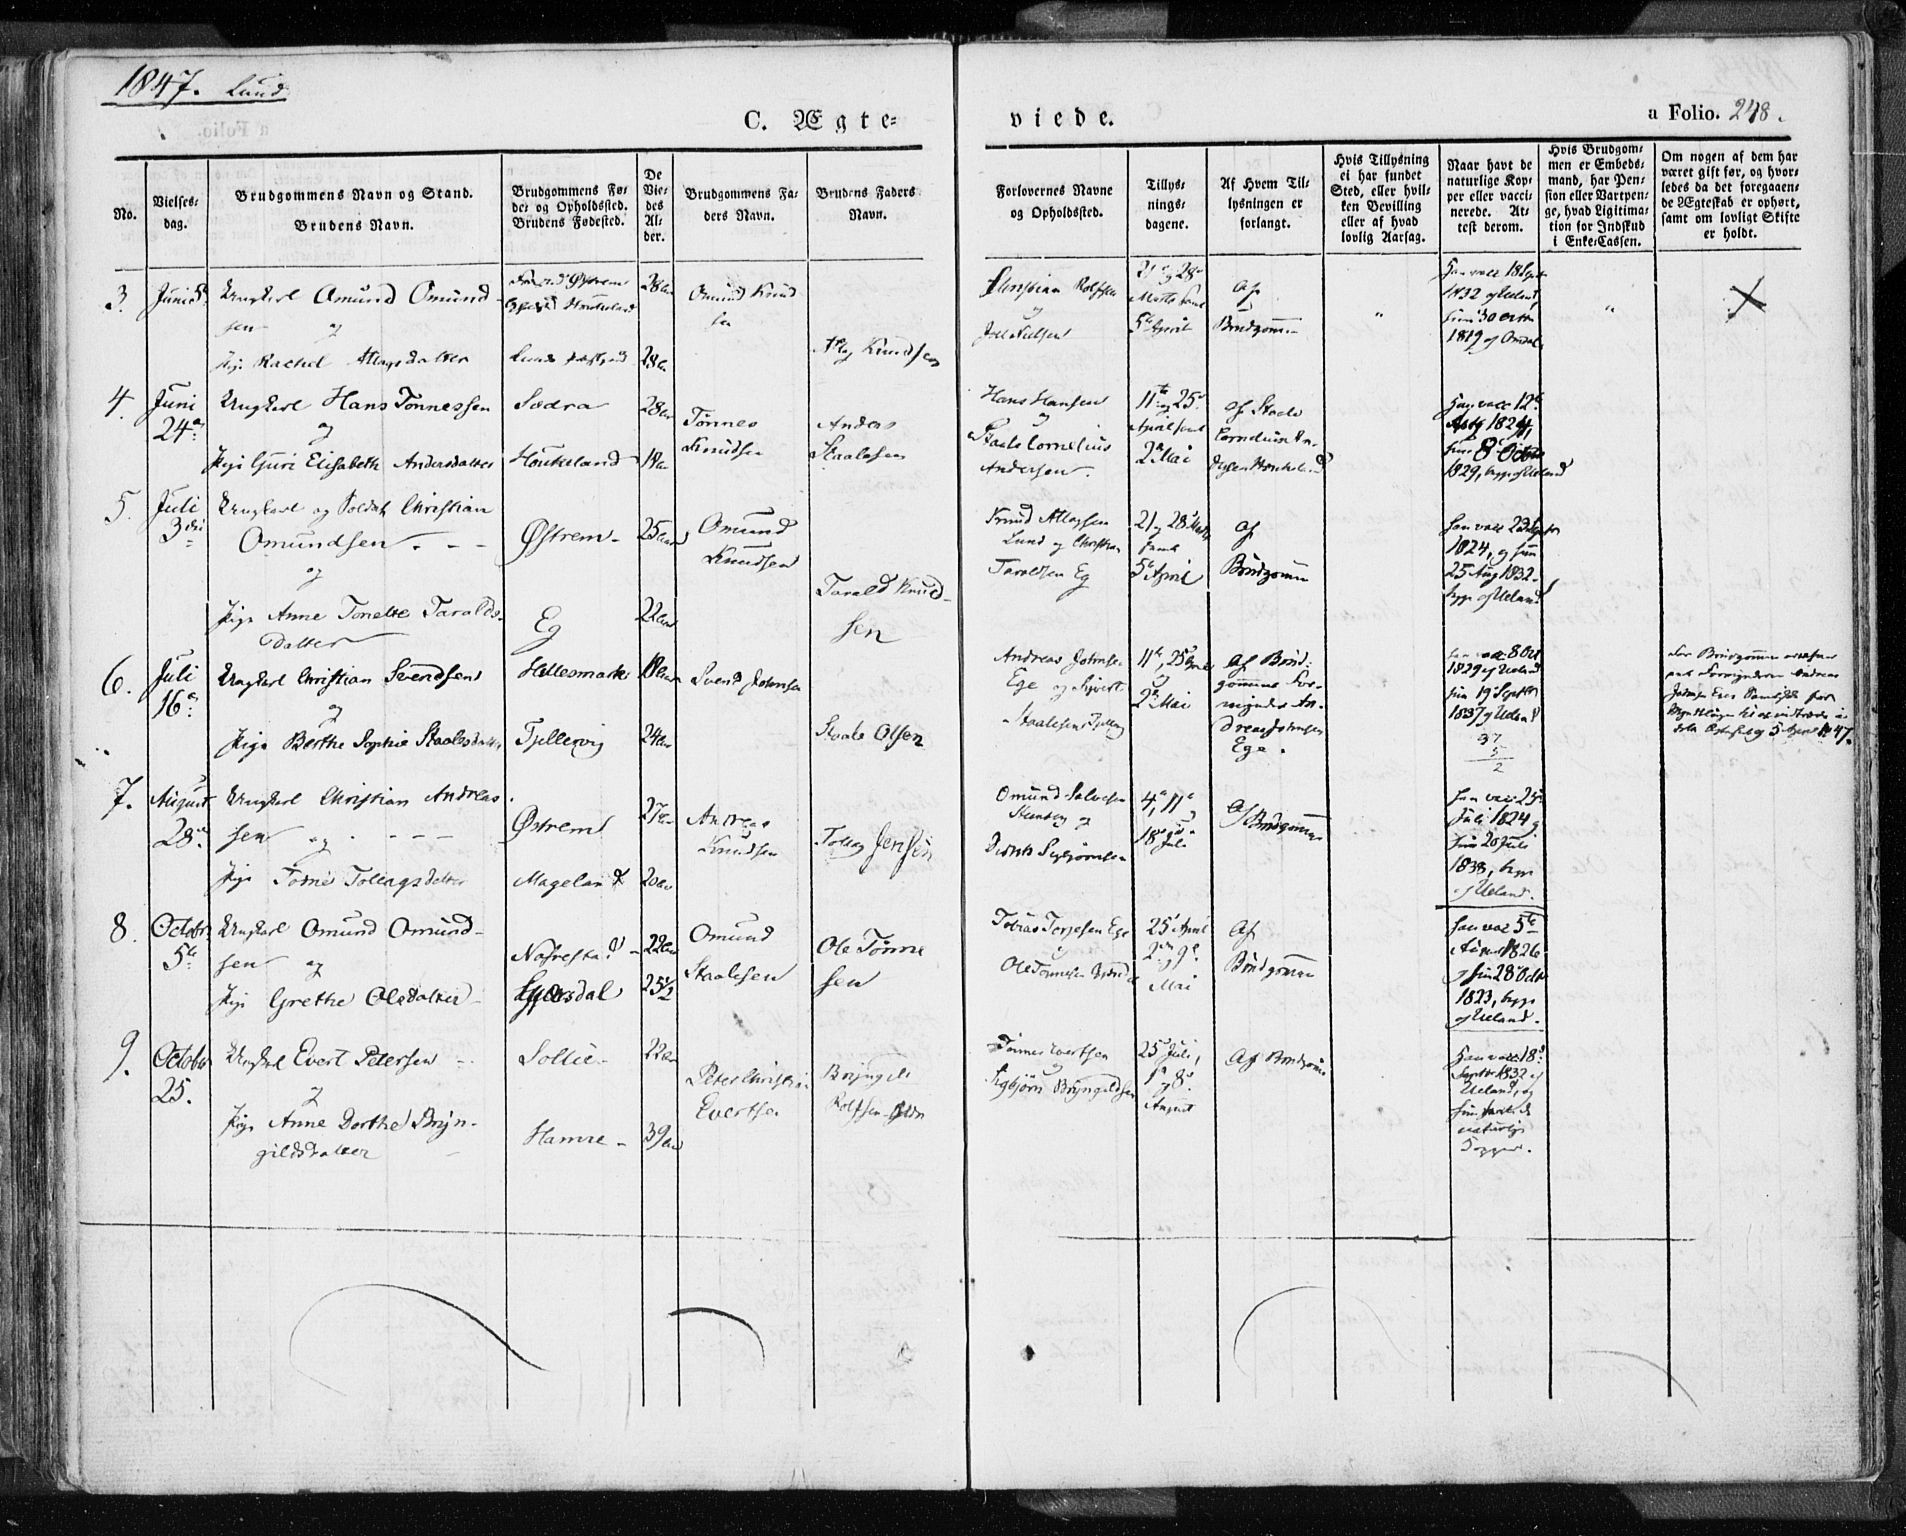 1847. Lund
C. Ægte=
viede.
a Folio. 248.
No.
Vielses=
dag.
Brudgommens Navn og Stand.
Brudens Navn.
Brudgommens Fø=
de= og Opholdssted.
Brudens Fødested.
De
Vie=
des
Al=
der.
Brudgommens Fa=
ders Navn.
Brudens Faders
Navn.
Forlovernes Navne
og Opholdssted.
Tillys=
nings=
dagene.
Af Hvem Til=
lysningen er
forlangt.
Hvis Tillysning
ei har fundet
Sted, eller hvil=
ken Bevilling
eller af hvad
lovlig Aarsag.
Naar havt de
naturlige Kop=
per eller vacci=
nerede. At=
test derom.
Hvis Brudgom=
men er Embeds=
mand, har Pen=
sion eller Vartpen=
ge, hvad Ligitima=
tion for Indskud
i Enke=Cassen.
Om nogen af dem har
været gift før, og hvor=
ledes da det foregaaen=
de Ægteskab er ophørt,
samt om lovligt Skifte
er holdt.
3.
Ungkarl Omund Omund-
sen og
Pige Rachel Atlagsdatter
28
Omund Knud
sen
Atlag Knudsen
Christian Rolfsen
og
21 og 28
5te April
af
Brudgommen
1832 af Ueland,
1819 af Omdal
4.
Juni
24de
Ungkarl Hans Tønnessen
og
Pige Guri Elisabeth Andersdatter
Sædra
Houkeland
28
19
Tønnes
Knudsen
Anders
Staalesen
Hans Hansen
og
Staale Cornelius
Andersen
11te og 25
April samt
2den Mai
af Staale
Cornelius An-
1824,
8 Octbr
1829, begge af Ueland
5.
Juli
3die
Ungkarl og Soldat Christian
Omundsen - -
og
Pige Anne Tonette Taralds-
datter
Østrem -
Eg
25
22
Omund
Knudsen
Tarald Knud-
sen
Knud Atlagsen
Lund og Christian
Taraldsen Eg
21 og 28 Marts
samt
5te April
af
Brudgommen
1824, og hun
25 Aug 1832.
begge af Ueland
6.
Juli
16de
Ungkarl Christian Svendsen
og
Pige Berthe Sophie Staalesdatter
Hellesmark
Tjellesvig
19
24
Svend Johnsen
Staale Olsen
Andreas Johnsen
Ege og Sivert
Staalesen
11te, 25
og
2den Mai
af Brud-
gommens For-
mynder An-
dreas Johnsen
Ege.
1829 af Ueland
hun 19 Septbr
1837 af Ueland
37
5
2
5 April 1847.
7.
August
28de
Ungkarl Christian Andreas
sen og - - -
Pige Tollagsdatter
Østrem
Mageland
27
20
Andreas
Knudsen
Tollag Jensen
Omund Salvesen
og
4de, 11te
og
18de Juli
af Brudgommen
han var 25
Juli 1824 og
hun 20 Juli
1838, begge
af Ueland.
8.
Octobr
5te
Ungkarl Omund Omund-
sen og
Pige Grethe Olsdatter
Nafrestad -
Gjersdal
22
25 1/2
Omund
Staalesen
Ole Tønne
sen
Tobias Terjesen Ege
og
Ole Tønnesen
25 April
2den og 9de
Mai
af
Brudgommen
han var 5te
August 1826
og hun 28 Octbr
1823, begge
af Ueland.
9.
October
25.
Ungkarl Evert Petersen
og
Pige Anne Dorthe Bryn-
gildsdatter
Sollie -
Hamre -
22
39
Peter Christian
Evertsen
Bryngeld
Rolfsen
Tønnes Evertsen
og
Sigbjørn Bryngeldsen
25 Juli,
1ste og 8de
August
af Brudgommen
han var 18
Septbr 1832 af
Ueland, og
hun havde
naturlige
Kopper.